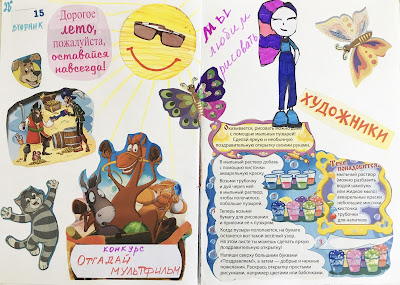 15
ВТОРНИК
Дорогое
лето,
пожалуйста,
оставайся
навсегда!
КОНКУРС
ОТГАДАЙ
МУЛЬТФИЛЬМ
МЫ
любим
рисовать
ХУДОЖНИКИ
Оказывается, рисовать можно
с помощью мыльных пузырей!
Сделай яркую и необычную
поздравительную открытку своими руками.
В мыльный раствор добавь
с помощью кисточки
акварельную краску
Возьми трубочку
и дуй через неё
в мыльный раствор,
чтобы получилось
побольше пузырей.
Теперь возьми
бумагу для рисования
и приложи её к пузырям.
Когда пузыри лопнут, на бумаге
останется вот такой весёлый узор.
На этом листе ты можешь сделать яркую
поздравительную открытку!
Напиши сверху большими буквами
«Поздравляем!», а затем — добрые и нежные
пожелания. Раскрась открытку простыми
рисунками, например цветами или бабочками.
Тебе
понадобится:
мыльный раствор
(можно разбавить
водой шампунь
или жидкое мыло)
акварельные краски
кисточка
трубочки
для напитков